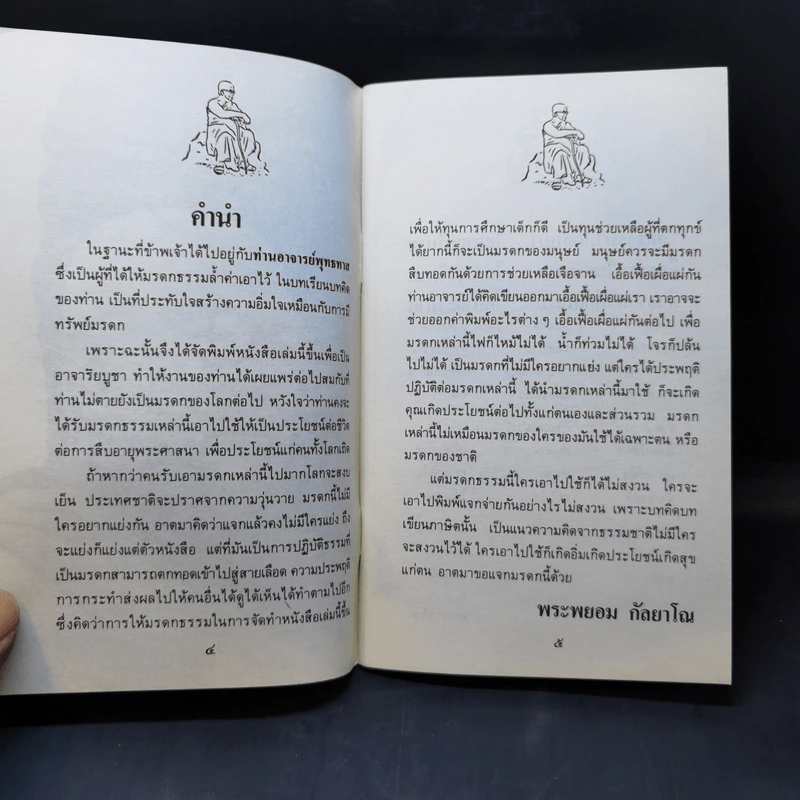 คำนำ
ในฐานะที่ข้าพเจ้าได้ไปอยู่กับท่านอาจารย์พุทธทาส
ซึ่งเป็นผู้ที่ได้ให้มรดกธรรมล้ำค่าเอาไว้ ในบทเรียนบทคิด
ของท่าน เป็นที่ประทับใจสร้างความอิ่มใจเหมือนกับการมี
ทรัพย์มรดก
เพราะฉะนั้นจึงได้จัดพิมพ์หนังสือเล่มนี้ขึ้นเพื่อเป็น
อาจาริยบูชา ทำให้งานของท่านได้เผยแพร่ต่อไปสมกับที่
ท่านไม่ตายยังเป็นมรดกของโลกต่อไป หวังใจว่าท่านคงจะ
ได้รับมรดกธรรมเหล่านี้เอาไปใช้ให้เป็นประโยชน์ต่อชีวิต
ต่อการสืบอายุพระศาสนา เพื่อประโยชน์แก่คนทั้งโลกเถิด
ถ้าหากว่าคนรับเอามรดกเหล่านี้ไปมากโลกจะสงบ
เย็น ประเทศชาติจะปราศจากความวุ่นวาย มรดกนี้ไม่มี
ใครอยากแย่งกัน อาตมาคิดว่าแจกแล้วคงไม่มีใครแย่ง ถึง
จะแย่งก็แย่งแต่ตัวหนังสือ แต่ที่มันเป็นการปฏิบัติธรรมที่
เป็นมรดกสามารถตกทอดเข้าไปสู่สายเลือด ความประพฤติ
การกระทำส่งผลไปให้คนอื่นได้ดูได้เห็นได้ทำตามไปอีก
ซึ่งคิดว่าการให้มรดกธรรมในการจัดทำหนังสือเล่มนี้ขึ้น
๔
เพื่อให้ทุนการศึกษาเด็กก็ดี เป็นทุนช่วยเหลือผู้ที่ตกทุกข์
ได้ยากนี้ก็จะเป็นมรดกของมนุษย์ มนุษย์ควรจะมีมรดก
สืบทอดกันด้วยการช่วยเหลือเจือจาน เอื้อเฟื้อเผื่อแผ่กัน
ท่านอาจารย์ได้คิดเขียนออกมาเอื้อเฟื้อเผื่อแผ่เรา เราอาจจะ
ช่วยออกค่าพิมพ์อะไรต่าง ๆ เอื้อเฟื้อเผื่อแผ่กันต่อไป เพื่อ
มรดกเหล่านี้ไฟก็ไหม้ไม่ได้ น้ำก็ท่วมไม่ได้ โจรก็ปล้น
ไปไม่ได้ เป็นมรดกที่ไม่มีใครอยากแย่ง แต่ใครได้ประพฤติ
ปฏิบัติต่อมรดกเหล่านี้ ได้นำมรดกเหล่านี้มาใช้ ก็จะเกิด
คุณเกิดประโยชน์ต่อไปทั้งแก่ตนเองและส่วนรวม มรดก
เหล่านี้ไม่เหมือนมรดกของใครของมันใช้ได้เฉพาะตน หรือ
มรดกของชาติ
แต่มรดกธรรมนี้ใครเอาไปใช้ก็ได้ไม่สงวน ใครจะ
เอาไปพิมพ์แจกจ่ายกันอย่างไรไม่สงวน เพราะบทคิดบท
เขียนภาษิตนั้น เป็นแนวความคิดจากธรรมชาติไม่มีใคร
จะสงวนไว้ได้ ใครเอาไปใช้ก็เกิดอิ่มเกิดประโยชน์เกิดสุข
แก่ตน อาตมาขอแจกมรดกนี้ด้วย
พระพยอม กัลยาโณ
๕